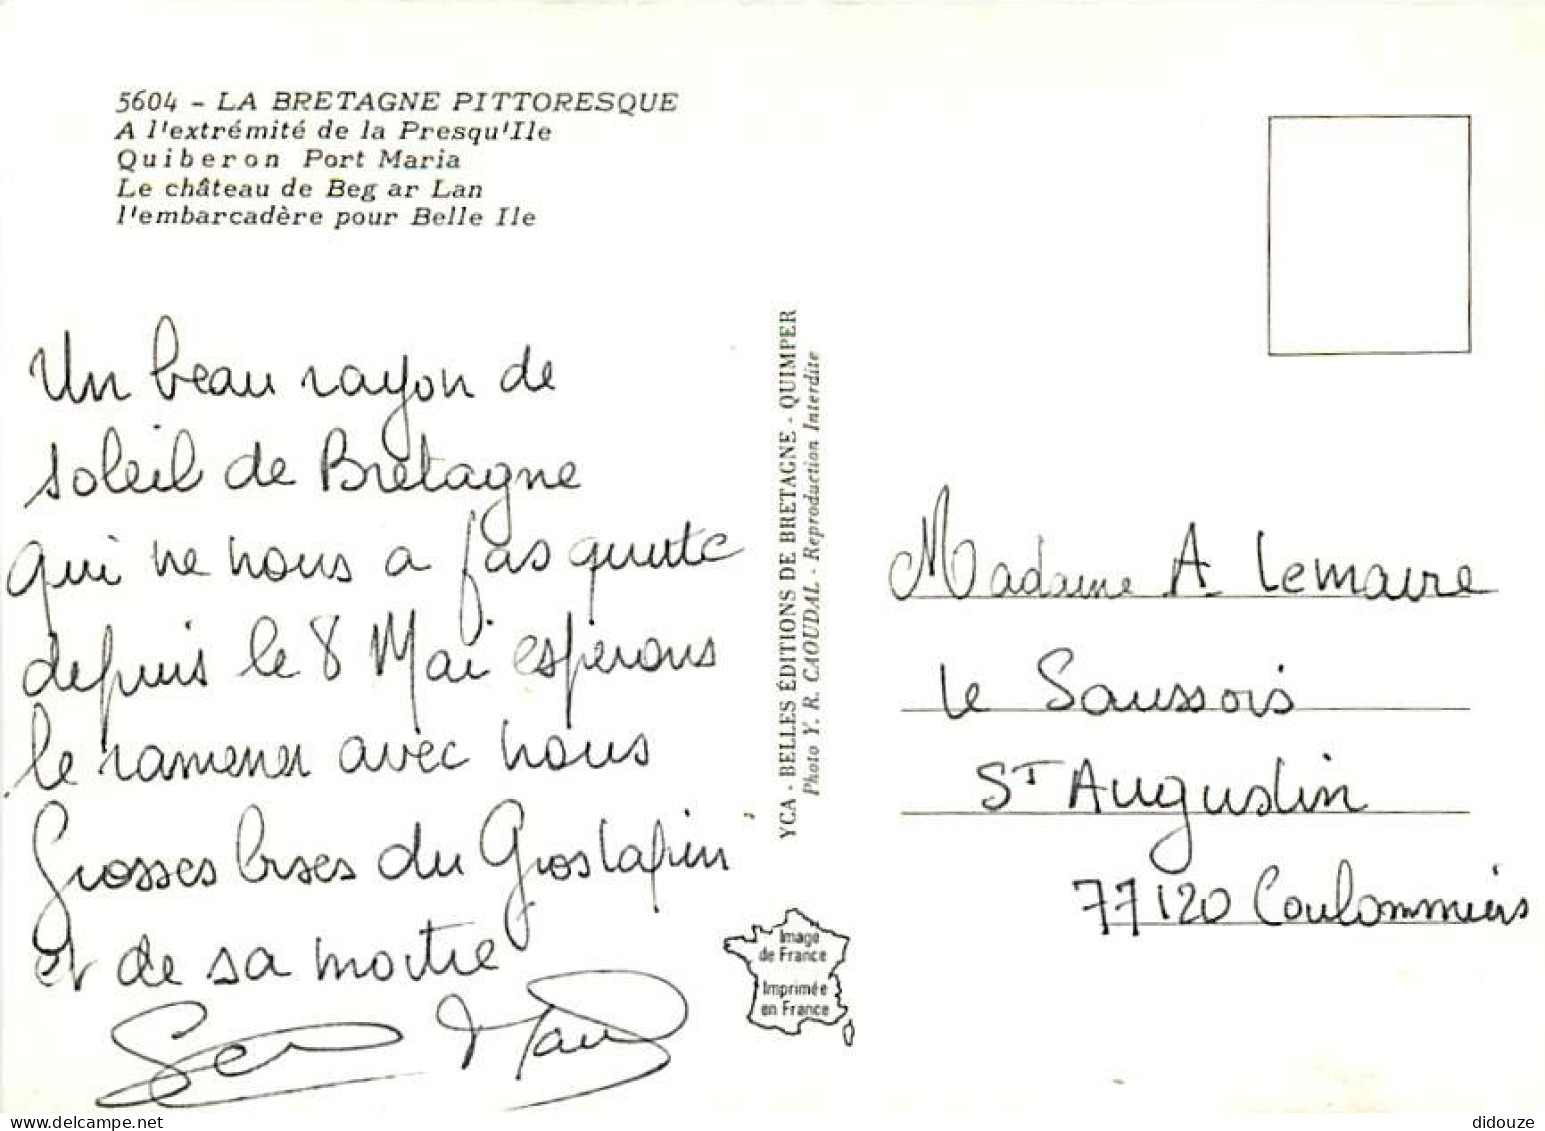 5604 - LA BRETAGNE PITTORESQUE
A l'extrémité de la Presqu'Ile
Quiberon Port Maria
Le château de Beg ar Lan
l'embarcadère pour Belle Ile
Un beau rayon de
soleil de Bretagne
qui ne nous a pas quitté
depuis le 8 Mai esperons
le ramener avec nous
Grosses bises du Groslapin
et de sa moitie
YCA - BELLES ÉDITIONS DE BRETAGNE - QUIMPER
Photo Y. R. CAOUDAL - Reproduction Interdite
Madame A. Lemaire
le Saussois
ST Augustin
77120 Coulommiers
Image
de France
Imprimée
en France
didouze
delcampe.net